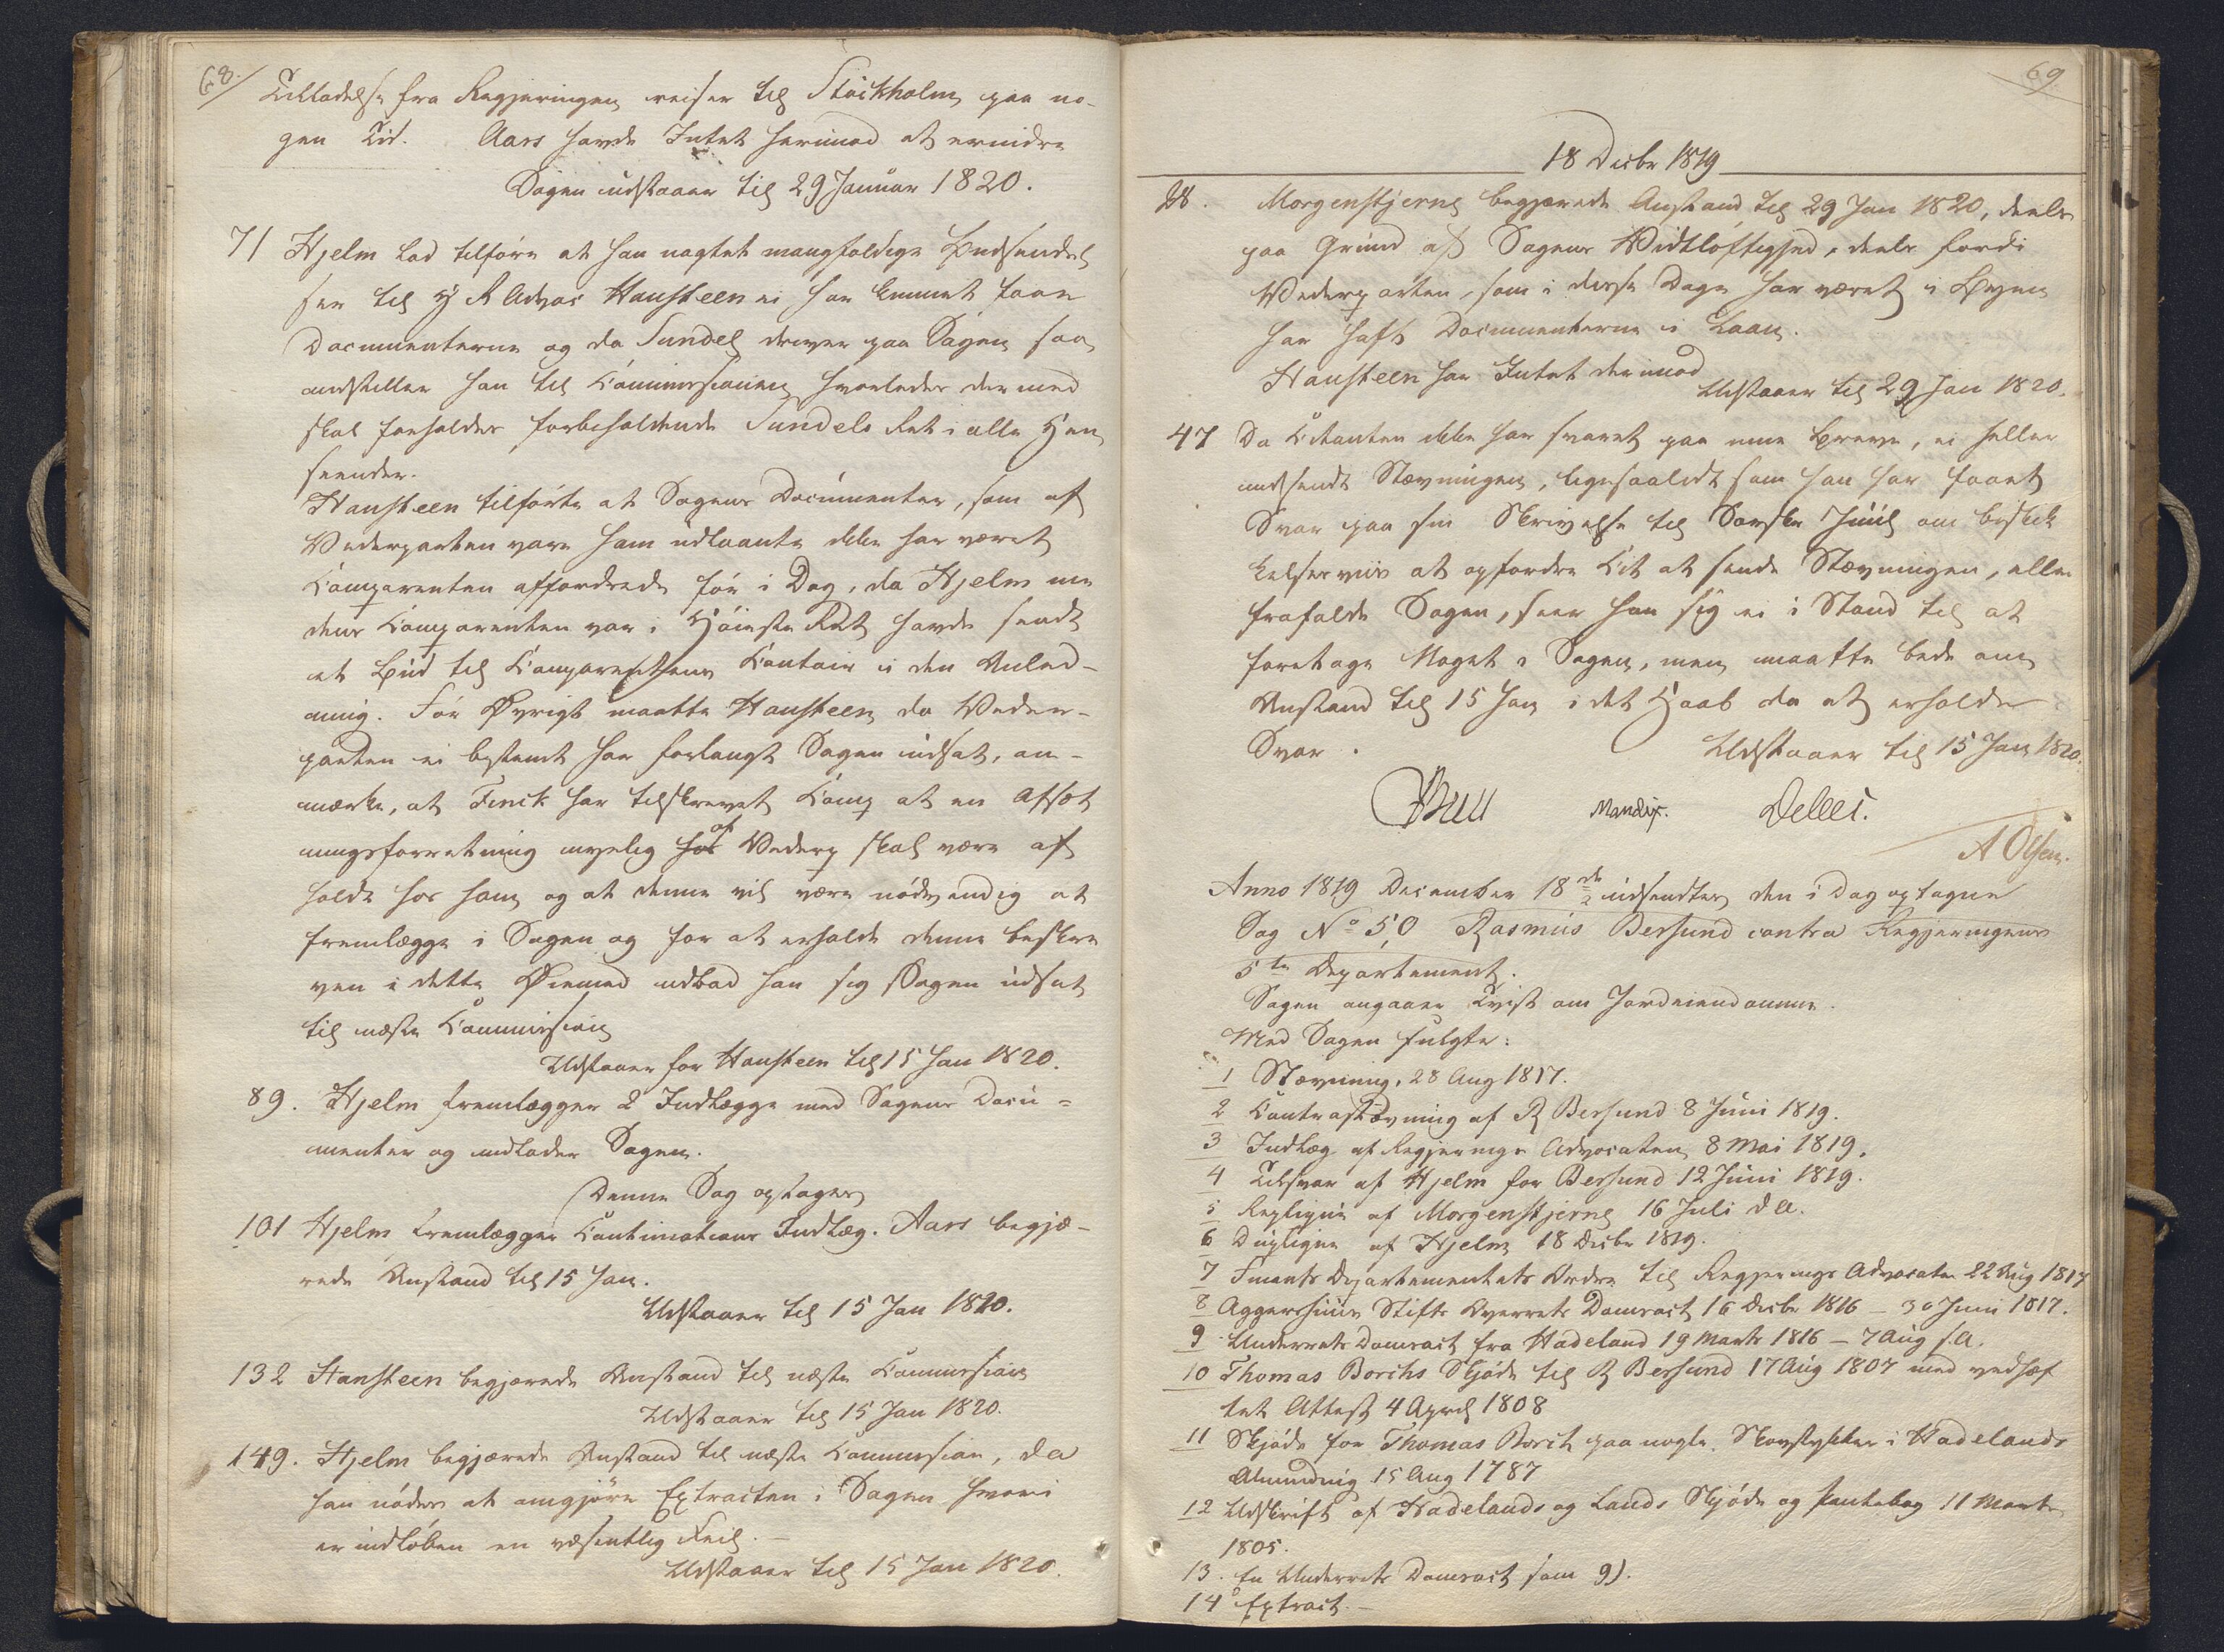 68.
Tilladelse fra Regjeringen reiser til Stockholm paa no-
gen Tid. Aars havde Intet herimod at erindre
Sagen udstaaer til 29 Januar 1820.
71 Hjelm lod tilføre at han uagtet mangfoldige Budsendel
ser til H R Advoc Hansteen ei har kunnet faae
Documenterne og da Sundel driver paa Sagen saa
indstiller han til Commissionen hvorledes dermed
skal forholdes forbeholdende Sundels Ret i alle Hen
seender.
Hansteen tilførte at Sagens Documenter, som af
Vederparten vare ham udlaante ikke har været
Comparenten affordrede før i Dag, da Hjelm me
dens Comparenten var i Høieste Ret havde sendt
et Bud til Comparentens Contoir i den Anled-
ning. For Øvrigt maatte Hansteen da Veder-
parten ei bestemt har forlangt Sagen udsat, an-
mærke, at Finck har tilskrevet Comp at en Afsæt
ningsforretning nyelig af Vederp skal være af
holdt hos ham og at denne vil være nødvendig at
fremlægge i Sagen og for at erholde denne beskre
ven i dette Øiemed udbad han sig Sagen udsat
til næste Commission
Udstaaer for Hansteen til 15 Jan 1820.
89. Hjelm fremlægger 2 Indlægge med Sagens Docu=
menter og indlader Sagen.
Denne Sag optages
101 Hjelm fremlægger Continuations Indlæg. Aars begjæ-
rede Anstand til 15 Jan.
Udstaaer til 15 Jan 1820.
132 Hansteen begjærede Anstand til næste Commission
Udstaaer til 15 Jan 1820.
149. Hjelm begjærede Anstand til næste Commission, da
han nødes at omgjøre Extracten i Sagen hvori
er indløben en væsentlig Feil.-
Udstaaer til 15 Jan 1820.
69
18 Decbr 1819
Morgenstjerne begjærede Anstand til 29 Jan 1820, deels
paa Grund af Sagens Vidtløftighed, deels fordi
Vederparten, som i disse Dage har været i Byen
har havt Documenterne i Laan.
Hansteen har Intet derimod
Udstaaer til 29 Jan 1820.
47 Da Citanten ikke har svaret paa mine Breve, ei heller
indsendt Stævningen, ligesaalidt som han har faaet
Svar paa sin Skrivelse til Sorskr Juul om beskik
kelsesviis at opfordre Cit at sende Stævningen, eller
frafalde Sagen, seer han sig ei i Stand til at
foretage Noget i Sagen, men maatte bede om
Anstand til 15 Jan i det Haab da at erholde
Svar. Udstaaer til 15 Jan 1820.
Mandix.
A Olsen.
Anno 1819 December 18de indsendtes den i Dag optagne
Sag No 50 Rasmus Bersund contra Regjeringens
5te Departement.
Sagen angaaer Tvist om Jordeiendomme.
Med Sagen fulgte:
1 Stævning, 28 Aug 1817.
2 Contrastævning af R Bersund 8 Juni 1819.
3 Indlæg af Regjerings Advocaten 8 Mai 1819.
4 Tilsvar af Hjelm for Bersund 12 Juni 1819.
5 Replique af Morgenstjerne 16 Juli d A.
6 Duplique af Hjelm 18 Decbr 1819.
7 Finants Departementets Ordre til Regjerings Advocaten 22 Aug 1817
8 Aggershuus Stifts Overrets Domsact 16 Decbr 1816 - 30 Juni 1817.
9 Underrets Domsact fra Hadeland 19 Marts 1816 - 7 Aug s. A.
10 Thomas Borchs Skjøde til R Bersund 17 Aug 1807 med vedhæf
tet Attest 4 April 1808
11 Skjøde for Thomas Borch paa nogle Skovstykker i Hadelands
Almindnig 15 Aug 1787
12 Udskrift af Hadelands og Lands Skjøde og Pantebog 11 Marts
1805.
13. En Underrets Domsact som 9).
14 Extract.-